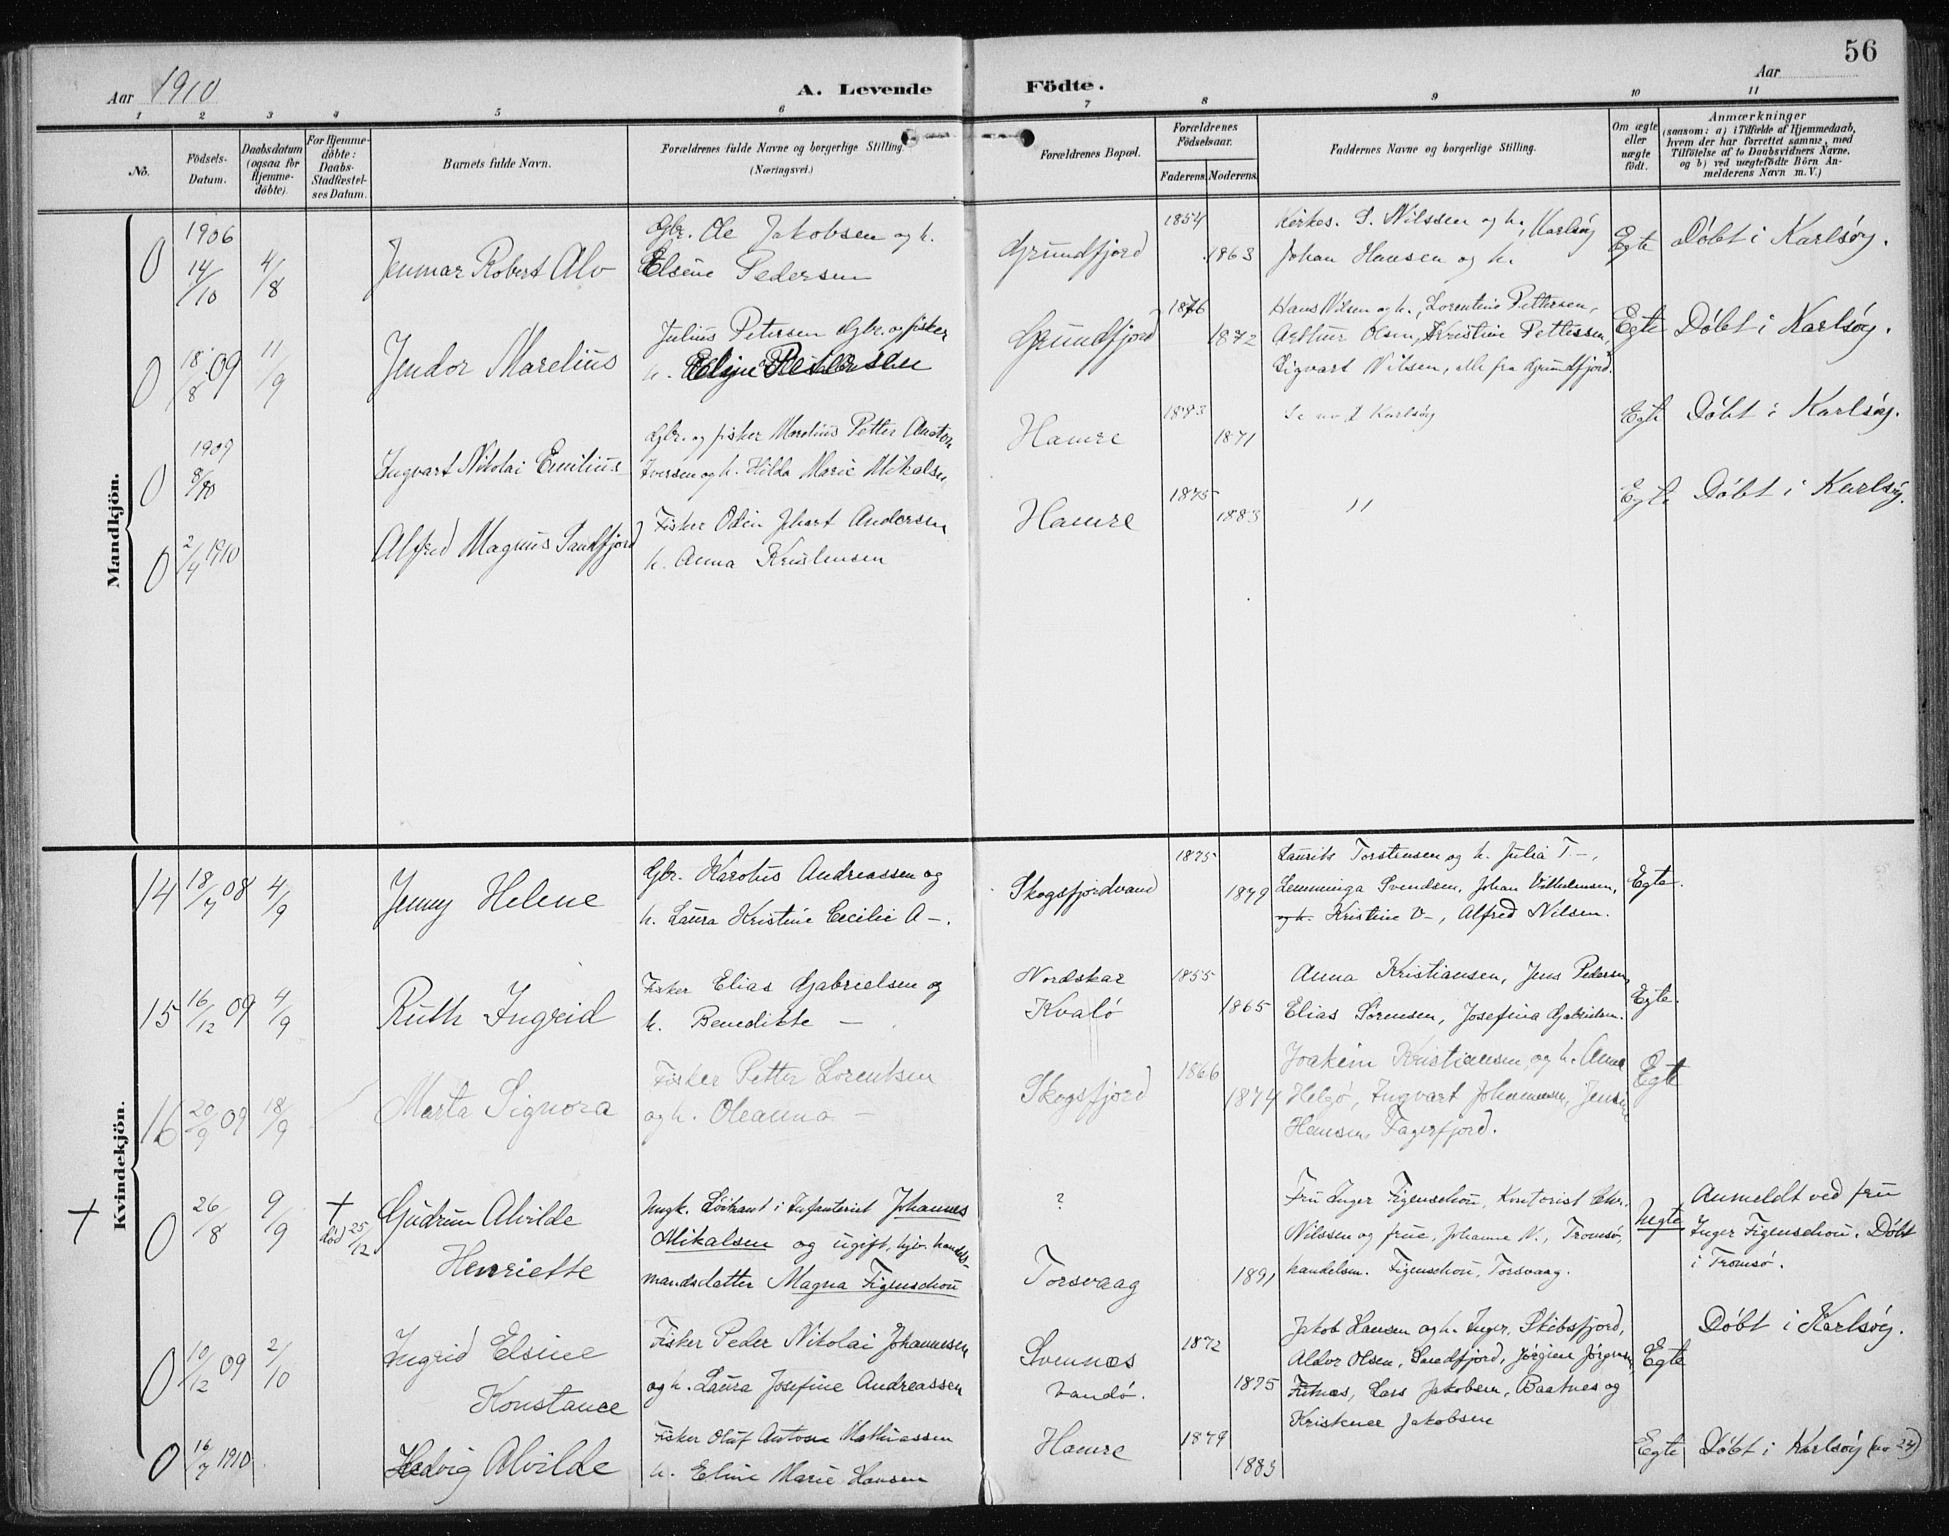 56
Aar 1910
A. Levende Födte.
Aar
1 2 3 4 5 6 7 8 9 10 11
No.
Födsels-Datum.
Daabsdatum (ogsaa for Hjemme-döbte).
For Hjemme-döbte: Daabs-Stadfæstel-ses Datum.
Barnets fulde Navn.
Forældrenes fulde Navne og borgerlige Stilling. (Næringsvei.)
Forældrenes Bopæl.
Forældrenes Födselsaar.
Faderens. Moderens.
Faddernes Navne og borgerlige Stilling.
Om ægte eller uægte født.
Anmærkninger
(saasom: a) i Tilfælde af Hjemmedaab, hvem der har forrettet samme, med Tilföielse af to Daabsvidners Navne, og b) ved uægtefödte Börn An-melderens Navn m. V.)
Mandkjön.
0 1906 14/10 4/8 Jenmar Robert Alv
Gbr. Ole Jakobsen og h.
Elsine Pedersen
Grundfjord 1854 1863
Kirkes. S. Nilssen og h., Karlsöy
Johan Hansen og h.
Egte Döbt i Karlsöy.
0 18/8 09 11/9 Jendor Marelius
Julius Petersen Gbr. og fisker
h. Petersen
Grundfjord 1876 1872
Hans Nilsen og h., Lorentine Pettersen,
Arthur Olsen, Kristine Pettersen,
Sigvart Nilsen, alle fra Grundfjord.
Egte Döbt i Karlsöy.
0 1909 8/10 Ingvart Nikolai Emilius
Gbr. og fisker Marelius Petter Anton
Iversen og h. Hilda Marie Mikalsen
Hamre 1873 1871
Se no Karlsöy
Egte Döbt i Karlsöy.
0 2/4 1910 Alfred Magnus Sandfjord
Fisker Odin Jhart Andersen
h. Anna Kristensen
Hamre 1875 1883
"
Egte Döbt i Karlsöy.
Kvindekjön.
14 18/7 08 4/9 Jenny Helene
Gbr. Karolus Andreassen og
h. Laura Kristine Cecilie A–.
Skogsfjordvand 1875 1879
Laurits Torstensen og h. Julia T–,
Lemminga Svendsen, Johan Vilhelmsen,
og h. Kristine V–, Alfred Nilsen.
Egte.
15 16/12 09 4/9 Ruth Ingrid
Fisker Elias Gabrielsen og
h. Benedikte –
Nordskar
Kvalö
1855 1865
Anna Kristiansen, Jens Pedersen,
Elias Sörensen, Josefina Gabrielsen.
Egte.
16 20/9 09 18/9 Marta Signora
Fisker Petter Lorentsen
og h. Oleanna –
Skogsfjord 1866 1874
Joakim Kristiansen og h. Anna
Helgö, Ingvart Johannesen, Jensine
Hansen Fagerfjord.
Egte
+ 0 26/8 9/9 + död 25/12 Gudrun Alvilde
Henriette
Ungk. Löitnant i Infanteriet Johannes
Mikalsen og ugift, hjv. handels-
mandsdatter Magna Figenschou
?
Torsvaag 1891
Fru Inger Figenschou, Kontorist Chr.
Nilssen og frue, Johanne N., Tromsö,
handelsm. Figenschou, Torsvaag.
Uegte
Anmeldt ved fru
Inger Figenschou. Döbt
i Tromsö.
0 10/12 09 2/10 Ingrid Elsine
Konstance
Fisker Peder Nikolai Johannesen
og h. Laura Josefine Andreassen
Svennes
Vandö.
1872 1875
Jakob Hansen og h. Inger, Skibsfjord,
Aldor Olsen, Sandfjord, Jörgine Jörgensen,
Lars Jakobsen, Baatnes og
Kristence Jakobsen
Egte
Döbt i Karlsöy.
0 16/7 1910 Hedvig Alvilde
Fisker Oluf Antone Mathiassen
h. Eline Marie Hansen
Hamre 1879 1883
Egte Döbt i Karlsöy (no 24)